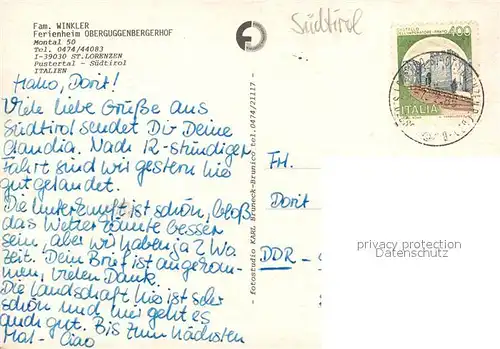 Fam. WINKLER
Ferienheim OBERGUGGENBERGERHOF
Montal 50
Tel. 0474/44083
I-39030 ST.LORENZEN
Pustertal - Südtirol
ITALIEN
Hallo, Dorit!
Viele liebe Grüße aus
Südtirol sendet Dir Deine
Claudia. Nach 12-stündiger
Fahrt sind wir gestern hier
gut gelandet.
Die Unterkunft ist schön, bloß
das Wetter könnte besser
sein, aber wir haben ja 2 Wo.
Zeit. Dein Brief ist angekom-
men, vielen Dank.
Die Landschaft hier ist sehr
schön und hier geht es
auch gut. Bis zum nächsten
Mal - Ciao
- fotostudio KARL Bruneck-Brunico tel.0474/21117 -
Südtirol
400
ITALIA
Frl.
Dorit
DDR -
privacy protection
Datenschutz